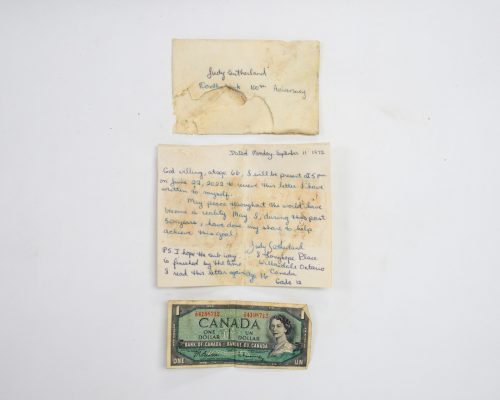 Judy Sutherland
100th Aniversary
Dated Monday, September 11 1972
God willing, at age 66, I will be present at 5 pm
on June 22, 2022 to receive this letter I have
written to myself.
May peace throughout the world have
become a reality May I, during this past
50 years, have done my share to help
achieve this goal.
Judy Sutherland
Place
Willowdale Ontario
Canada
PS I hope the subway
is finished by the time
I read this letter
1
1
CANADA
ONE
DOLLAR
UN
DOLLAR
BANK OF CANADA - BANQUE DU CANADA
ONE
UN